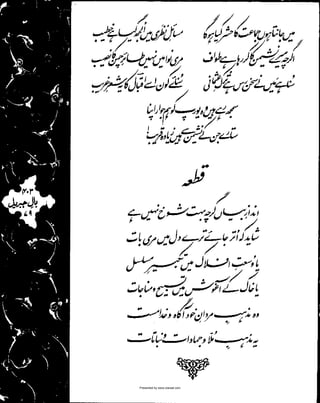 میں جانتا ہوں جماعت کا حشر کیا ہو گا مسائلِ نظری میں اُلجھ گیا ہے خطیب
اگرچہ میرے نشیمن کا کر رہا ہے طواف مری نوا میں نہیں طائرِ چمن کا نصیب
سُنا ہے میں نے سخن رس ہے تُرکِ عثمانی سُنائے کون اسے اقبالؔ کا یہ شعرِ غریب
سمجھ رہے ہیں وہ یورپ کو ہم جوار اپنا
ستارے جن کے نشیمن سے ہیں زیادہ قریب
قطعہ
اندازِ بیاں گرچہ بہت شوخ نہیں ہے
شاید کہ اُتر جائے ترے دل میں مری بات
یا وسعتِ افلاک میں تکبیرِ مسلسل
یا خاک کے آغوش میں تسبیح و مناجات
وہ مذہبِ مردانِ خود آگاہ و خدا مست
یہ مذہبِ مُلّا و جمادات و نباتات
۴۰۳
بالِ جبریل
۷۹
Presented by www.ziaraat.com